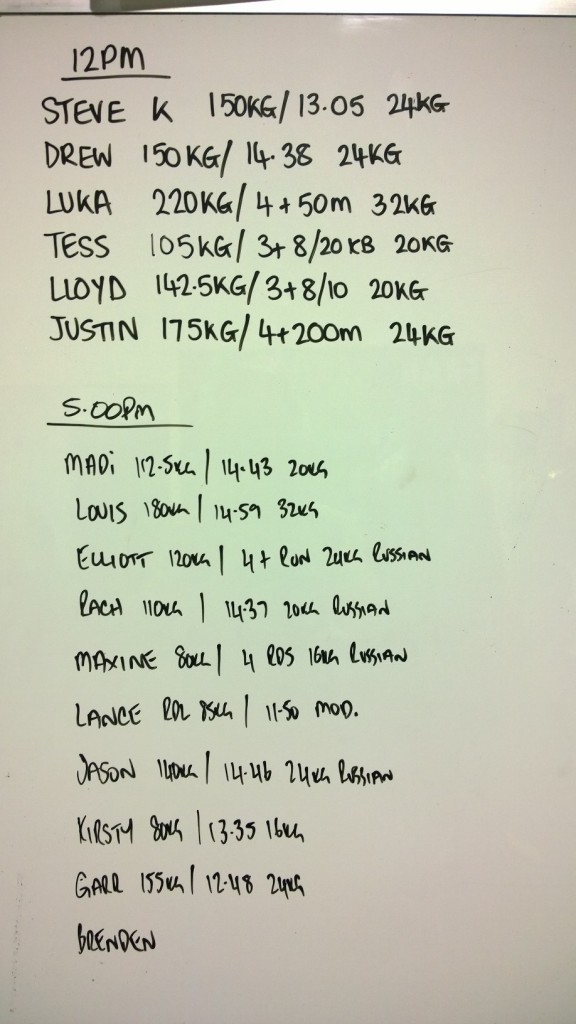 12PM
STEVE K 150KG/ 13.05 24KG
DREW 150KG/ 14.38 24KG
LUKA 220KG/ 4+50m 32KG
TESS 105KG/ 3+8/20 KB 20KG
LLOYD 142.5KG/ 3+8/10 20KG
JUSTIN 175KG/ 4+200m 24KG
5.00PM
MADi 112.5KG / 14.43 20KG
LOUIS 180KG / 14.59 32KG
ELLIOTT 120KG / 4+ RUN 24KG RUSSIAN
RACH 110KG / 14.37 20KG RUSSIAN
MAXINE 80KG / 4 RDS 16KG RUSSIAN
LANCE RDL 85KG / 11.50 MOD.
JASON 140KG / 14.46 24KG RUSSIAN
KIRSTY 80KG / 13.35 16KG
GARR 155KG / 12.48 24KG
BRENDEN